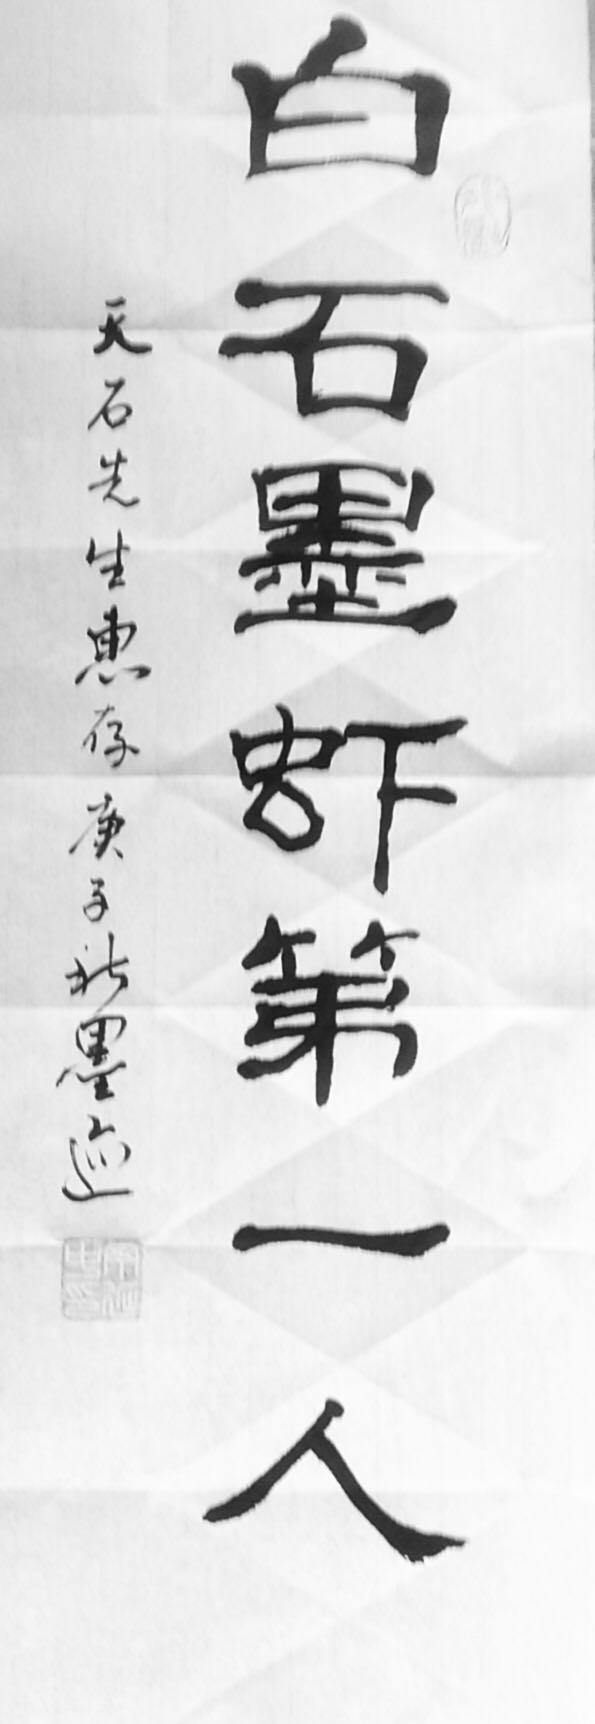 白石墨虾第一人
天石先生惠存庚子秋墨迹